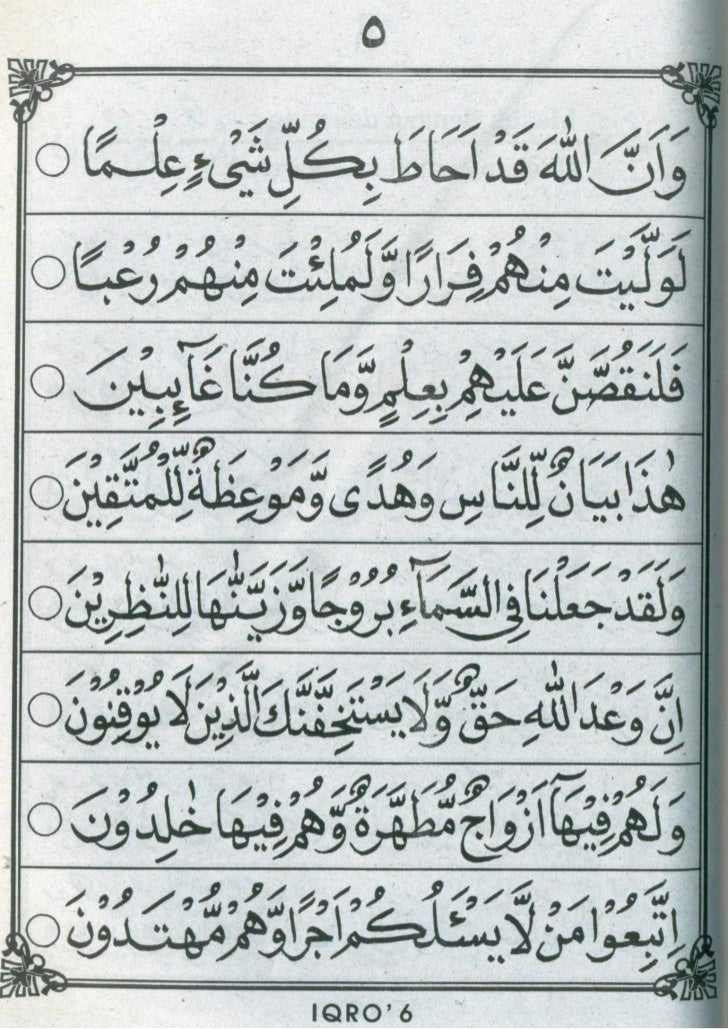 ٥
وَاَنَّ اللّٰهَ قَدْ اَحَاطَ بِكُلِّ شَيْءٍ عِلْمًا ○
لَوَلَّيْتَ مِنْهُمْ فِرَارًا وَّلَمُلِئْتَ مِنْهُمْ رُعْبًا ○
فَلَنَقُصَّنَّ عَلَيْهِمْ بِعِلْمٍ وَّمَا كُنَّا غَآئِبِيْنَ ○
هٰذَا بَيَانٌ لِّلنَّاسِ وَهُدًى وَّمَوْعِظَةٌ لِّلْمُتَّقِيْنَ ○
وَلَقَدْ جَعَلْنَا فِى السَّمَآءِ بُرُوْجًا وَّزَيَّنّٰهَا لِلنّٰظِرِيْنَ ○
اِنَّ وَعْدَ اللّٰهِ حَقٌّ وَّلَا يَسْتَخِفَّنَّكَ الَّذِيْنَ لَا يُوْقِنُوْنَ ○
وَلَهُمْ فِيْهَآ اَزْوَاجٌ مُّطَهَّرَةٌ وَّهُمْ فِيْهَا خٰلِدُوْنَ ○
اِتَّبِعُوْا مَنْ لَّا يَسْـَٔلُكُمْ اَجْرًا وَّهُمْ مُّهْتَدُوْنَ ○
IQRO' 6